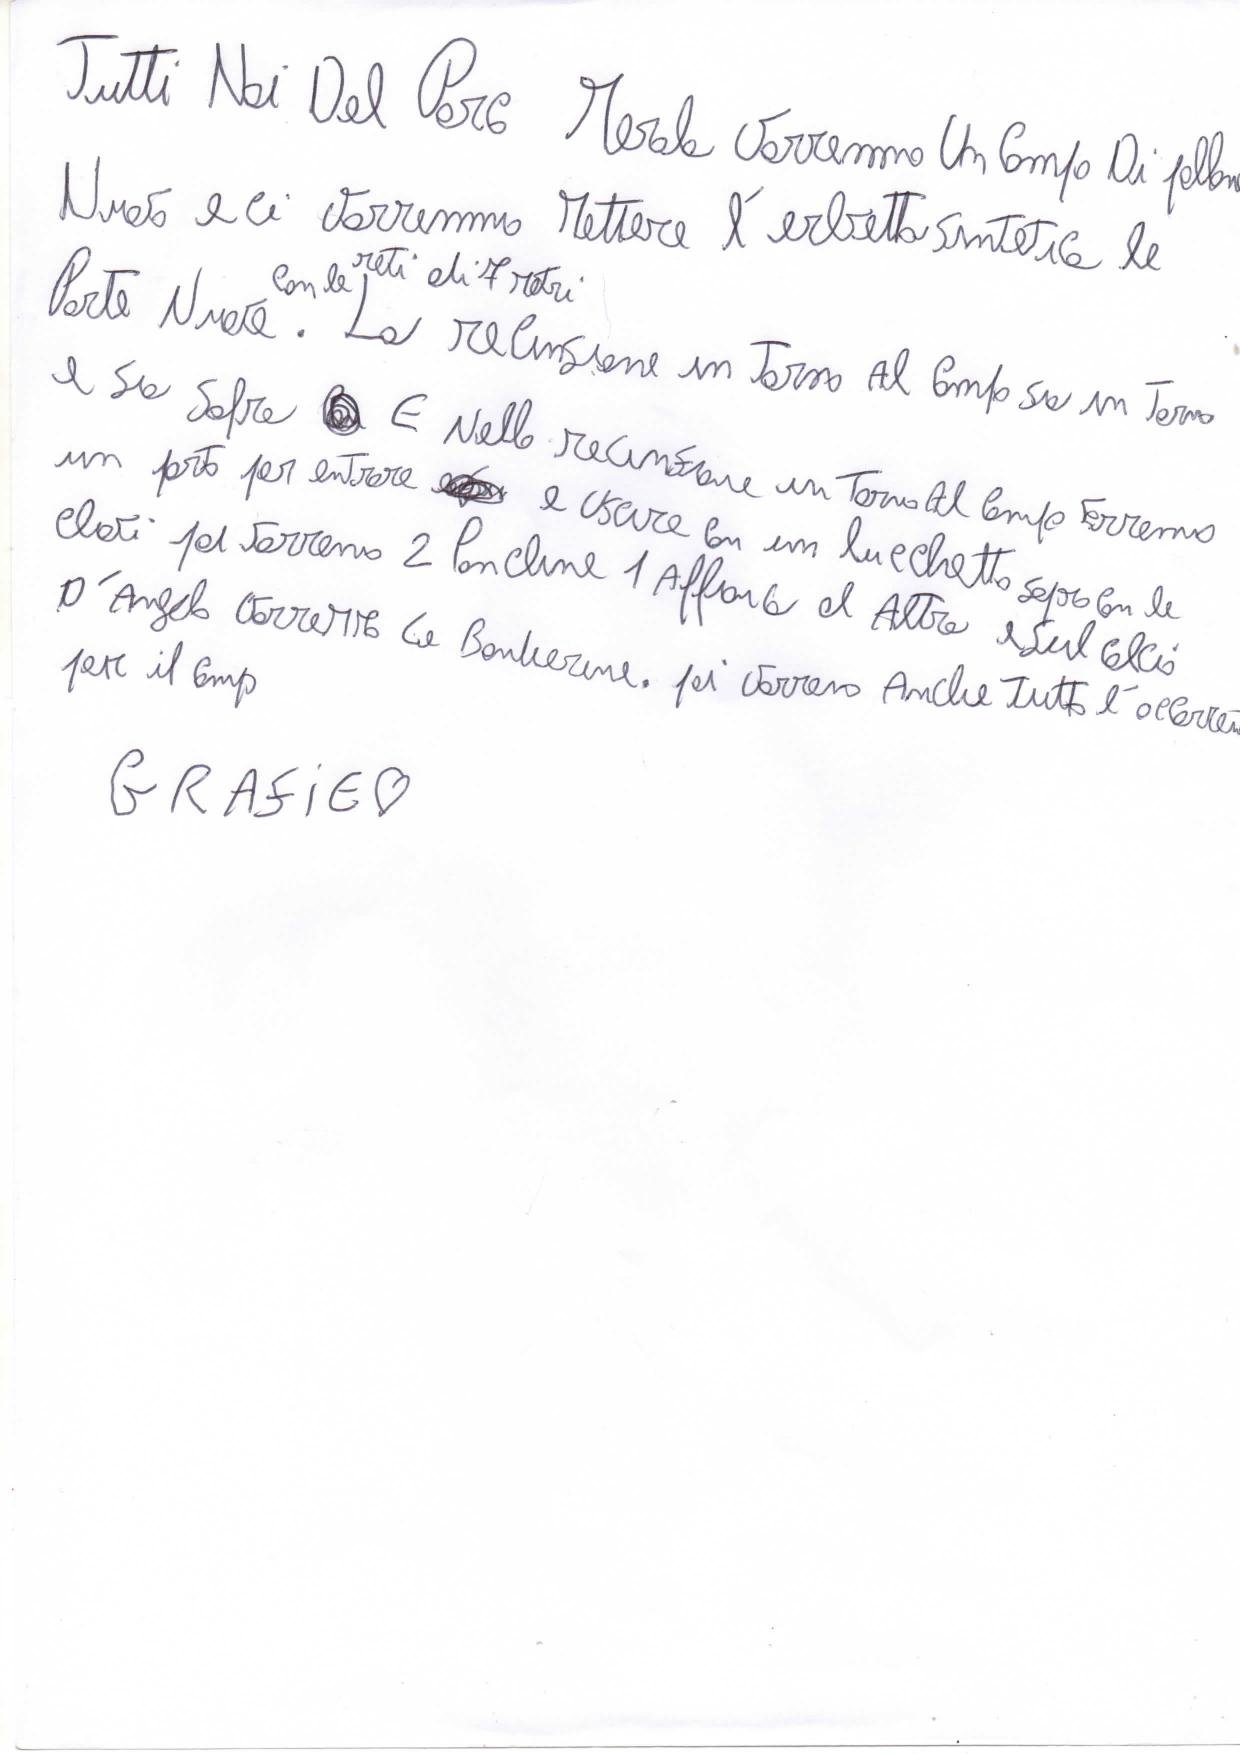 Tutti Noi Del Parco Merola vorremmo Un Campo Di pallone
Nuovo e ci vorremmo Mettere l'erbetta sintetica le
Porte Nuove con le reti di 7 metri. La recinsione in Torno Al Campo sia in Torno
e sia sopra E Nella recinzione in Torno Al Campo vorremmo
un porta per entrare e uscire con un lucchetto sopra con le
chiavi poi vorremo 2 Panchine 1 Affianco al Altra e sul calcio
D'Angolo vorremmo Le Bandierine. poi vorremo Anche Tutto l'occorren
per il campo
GRAZIE♡